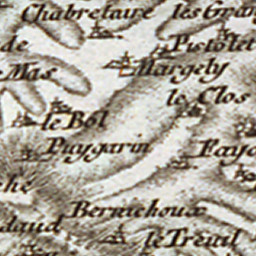 Chabretaire les Gran
de Pistolet
Mas Margely
le Clos
le Bol
Puygarin Fayo
che
Bernichoux
daud le Treuil